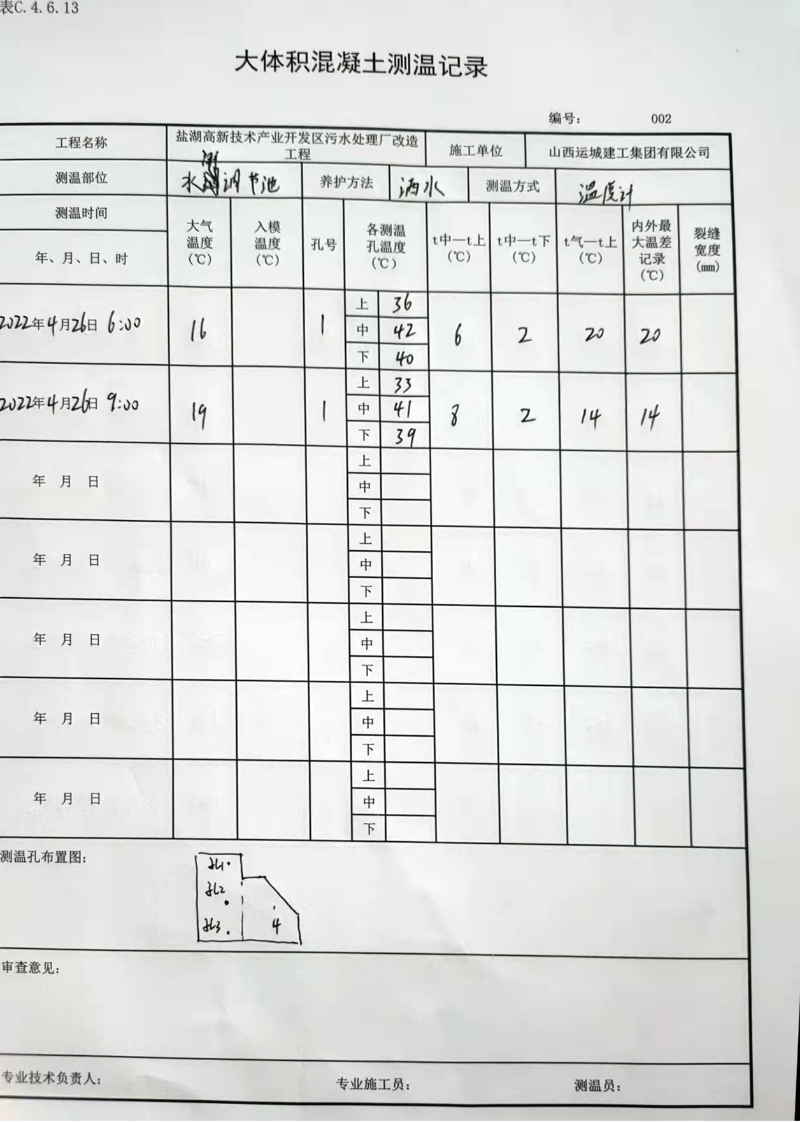 表C.4.6.13
大体积混凝土测温记录
编号： 002
工程名称 盐湖高新技术产业开发区污水处理厂改造工程 施工单位 山西运城建工集团有限公司
测温部位 水解调节池 养护方法 洒水 测温方式 温度计
测温时间 大气温度(℃) 入模温度(℃) 孔号 各测温孔温度(℃) t中—t上(℃) t中—t下(℃) t气—t上(℃) 内外最大温差记录(℃) 裂缝宽度(mm)
年、月、日、时
2022年4月26日 6:00 16 1 上 36 6 2 20 20
中 42
下 40
2022年4月26日 9:00 19 1 上 33 8 2 14 14
中 41
下 39
年 月 日 上
中
下
年 月 日 上
中
下
年 月 日 上
中
下
年 月 日 上
中
下
年 月 日 上
中
下
测温孔布置图：
孔1
孔2
孔3 4
审查意见：
专业技术负责人： 专业施工员： 测温员：